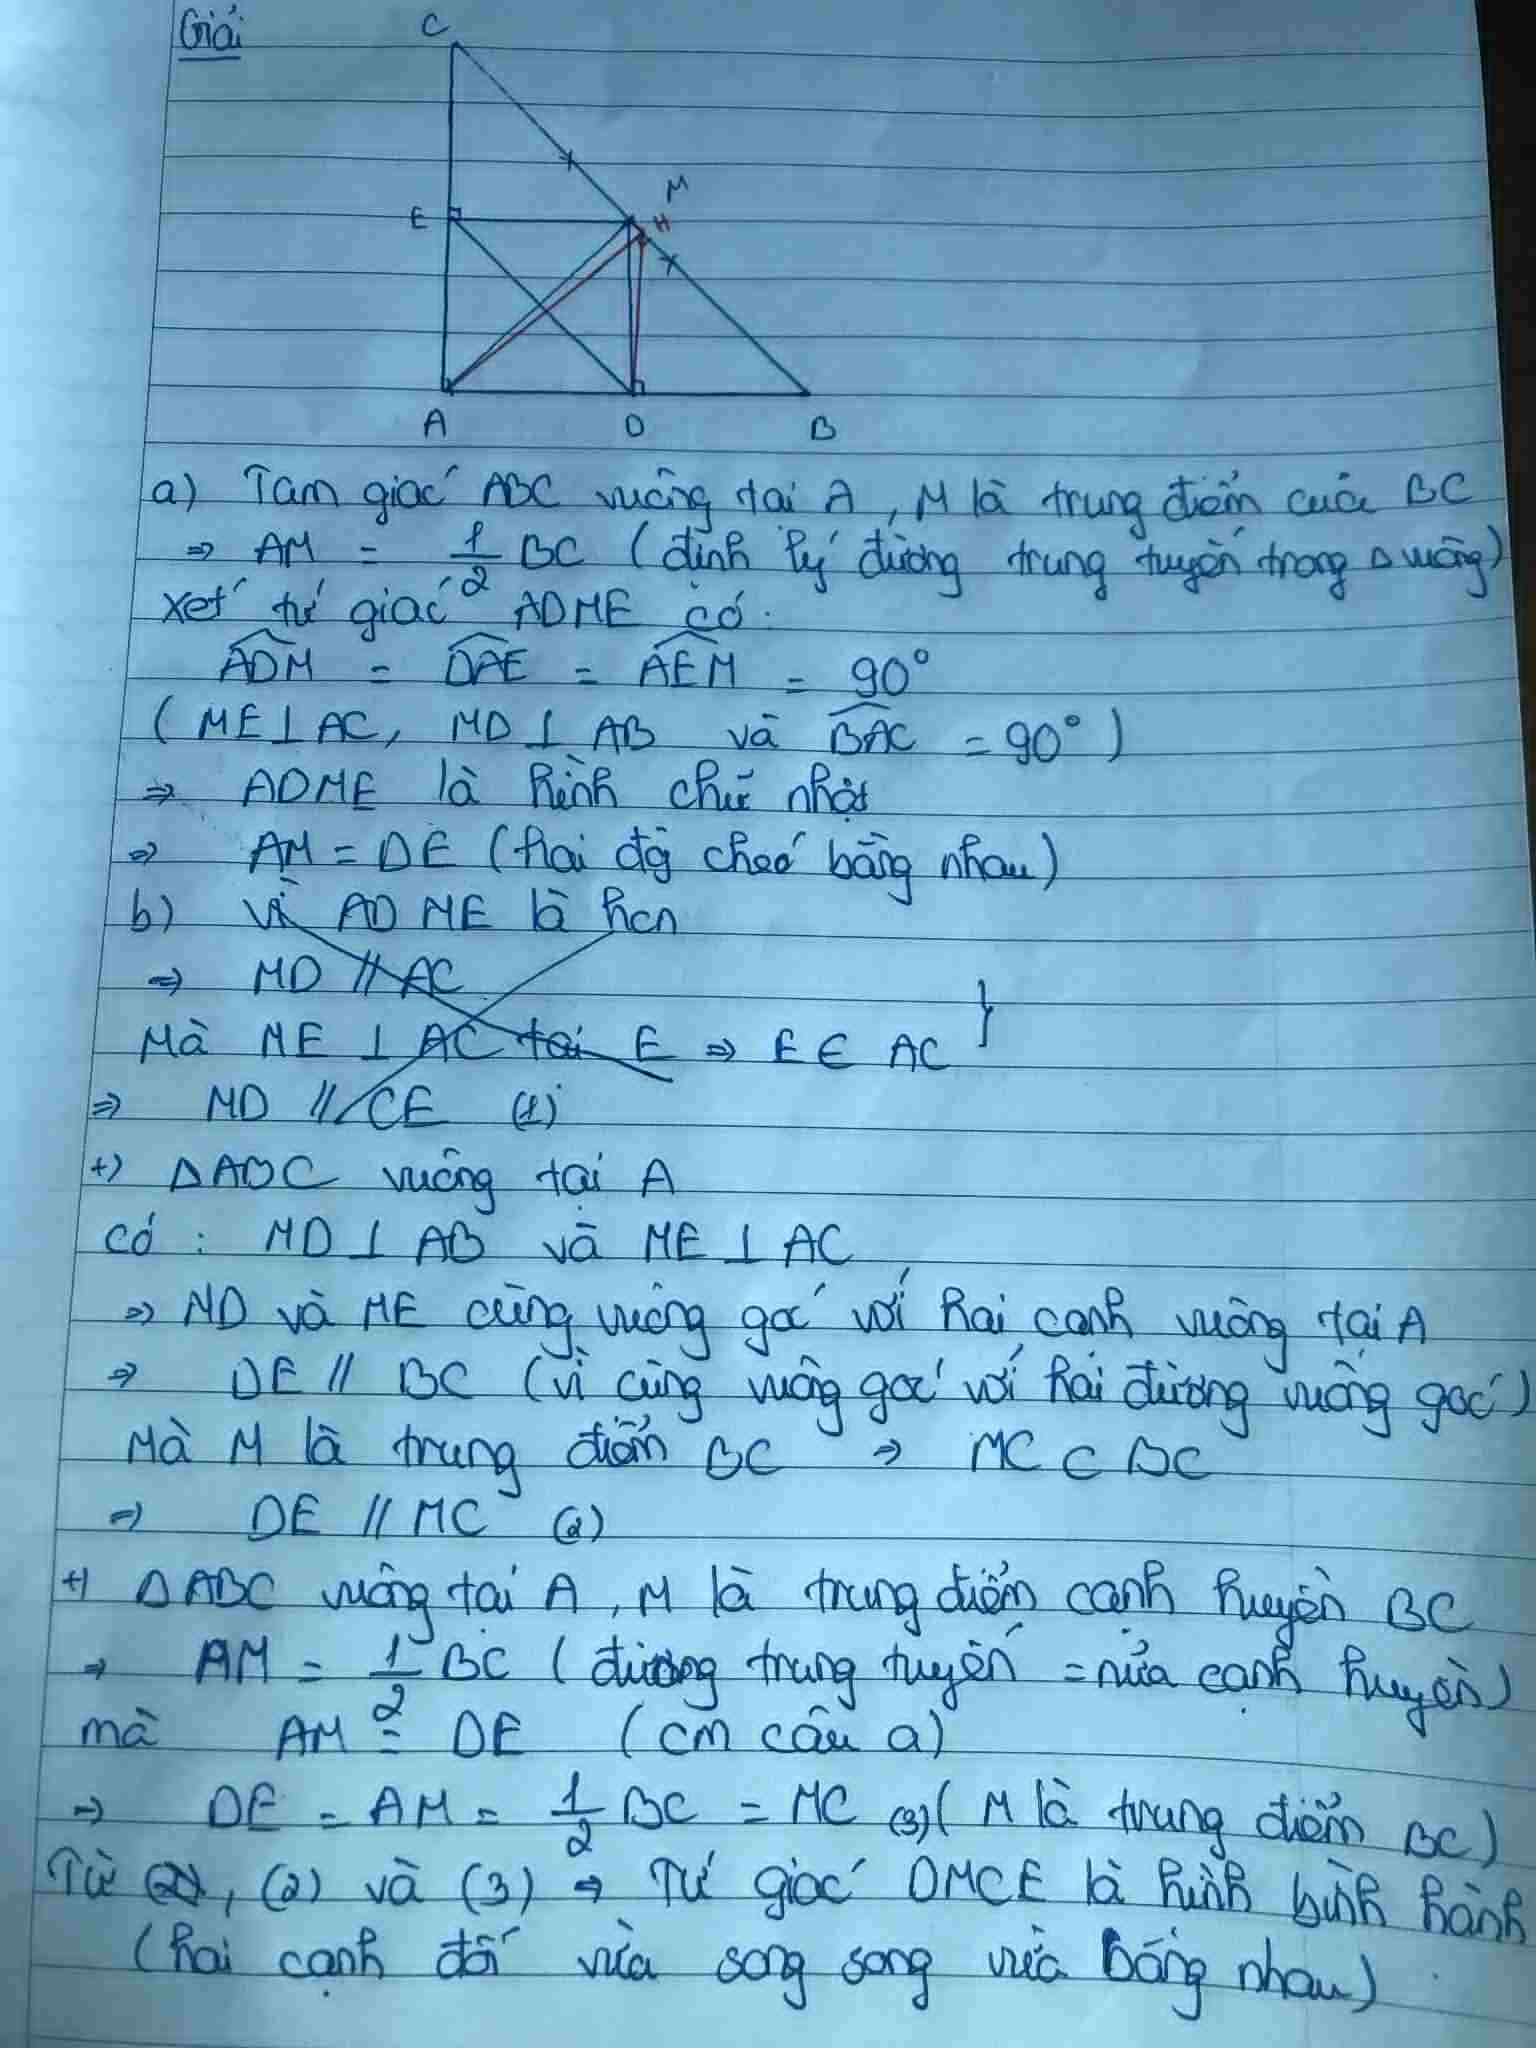 Giải
C
M
H
E
A
D
B
a) Tam giác ABC vuông tại A, M là trung điểm của BC
⇒ AM = 1/2 BC (định lý đường trung tuyến trong Δ vuông)
Xét tứ giác ADME có:
ADM = DAE = AEM = 90°
(ME ⊥ AC, MD ⊥ AB và BAC = 90°)
⇒ ADME là hình chữ nhật
⇒ AM = DE (hai đg chéo bằng nhau)
b) Vì ADME là hcn
⇒ MD // AC
Mà ME ⊥ AC tại E ⇒ E ∈ AC }
⇒ MD // CE (1)
+) ΔABC vuông tại A
có: MD ⊥ AB và ME ⊥ AC
⇒ MD và ME cùng vuông góc với hai cạnh vuông tại A
⇒ DE // BC (vì cùng vuông góc với hai đường vuông góc)
Mà M là trung điểm BC ⇒ MC ⊂ BC
⇒ DE // MC (2)
+) ΔABC vuông tại A, M là trung điểm cạnh huyền BC
⇒ AM = 1/2 BC (đường trung tuyến = nửa cạnh huyền)
mà AM = DE (cm câu a)
⇒ DE = AM = 1/2 BC = MC (3) (M là trung điểm BC)
Từ , (2) và (3) ⇒ Tứ giác DMCE là hình bình hành
(hai cạnh đối vừa song song vừa bằng nhau)